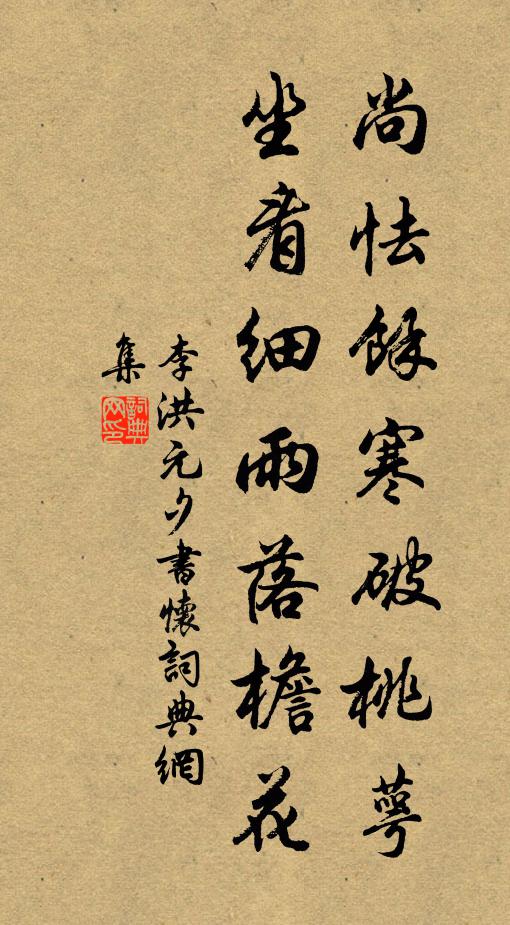 尚怯餘寒破桃萼
坐看細雨落檐花
李洪元夕書懷詞典網
集
詞典
网印